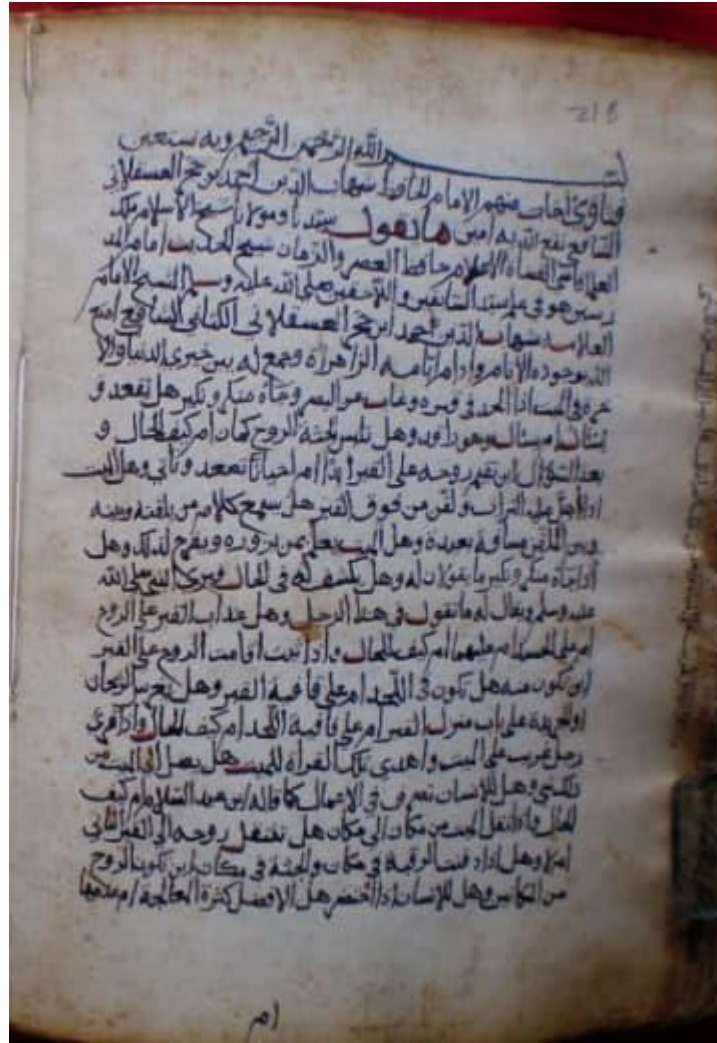 218
بسم الله الرحمن الرحيم وبه نستعين
فتاوى اجاب منهم الامام الحافظ شهاب الدين احمد بن حجر العسقلاني
الشافعي نفع الله به امين ما تقول سيدنا ومولانا شيخ الاسلام ملك
العلما قاضي القضاة الاعلام حافظ العصر والزمان شيخ الحديث امام المد
رسين هو في علم سيد السابقين واللاحقين صلى الله عليه وسلم الشيخ الامام
العلامة شهاب الدين احمد ابن حجر العسقلاني الكناني الشافعي امتع
الله بوجوده الانام وادام ايامه الزاهرة وجمع له بين خيري الدنيا والا
خرة في الميت اذا الحد في قبره وغاب عن البصر وجاه منكر ونكير هل يقعد و
يسال ام يسال وهو راقد وهل تلبس الجثة الروح كمان ام كيف الحال و
بعد السؤال اين تقيم روحه على القبر ابدا ام احيانا تصعد وتاتي وهل الميت
اذا اهيل عليه التراب ولقن من فوق القبر هل يسمع كلام من يلقنه وبينه
وبين الملقن مسافة بعيدة وهل الميت يعلم بمن يزوره ويفرح لذلك وهل
اذا جاه منكر ونكير ما يقولان له وهل يكشف له في الحال ويرى النبي صلى الله
عليه وسلم ويقال له ما تقول في هذا الرجل وهل عذاب القبر على الروح
ام على الجسد ام عليهما ام كيف الحال واذا ثبت اقامت الروح على القبر
اين تكون منه هل تكون في اللحد ام على قافية القبر وهل تغرس الريحان
او الجريدة على باب منزل القبر ام على قافية اللحد ام كيف الحال واذا قرئ
رجل غريب على الميت واهدى تلك القراة للميت هل يصل الى الميت من
ذلك شي وهل للانسان تصرف في الاعمال كما قاله ابن عبد السلام ام كيف
الحال واذا نقل الميت من مكان الى مكان هل تنتقل روحه الى القبر الثاني
ام لا وهل اذا دفنت الرقبة في مكان والجثة في مكان اين تكون الروح
من المكانين وهل للانسان اذا احتضر هل الافضل كثرة المعالجة ام عدمها
ام